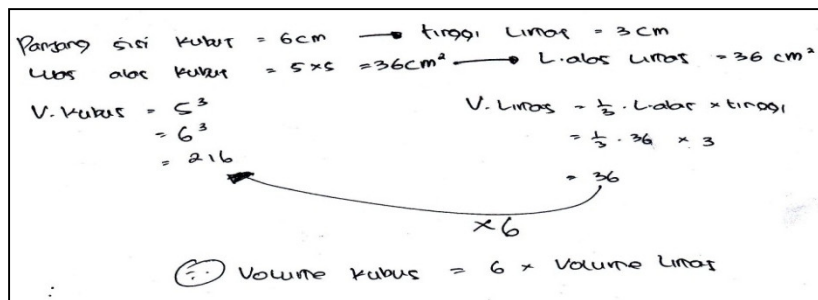 Panjang sisi kubus = 6cm → tinggi Limas = 3 cm
Luas alas kubus = s × s = 36cm² → L.alas Limas = 36 cm²
V. Kubus = s³
= 6³
= 216
V. Limas = 1/3 . L.alas × tinggi
= 1/3 . 36 × 3
= 36
×6
∴ Volume kubus = 6 × Volume Limas